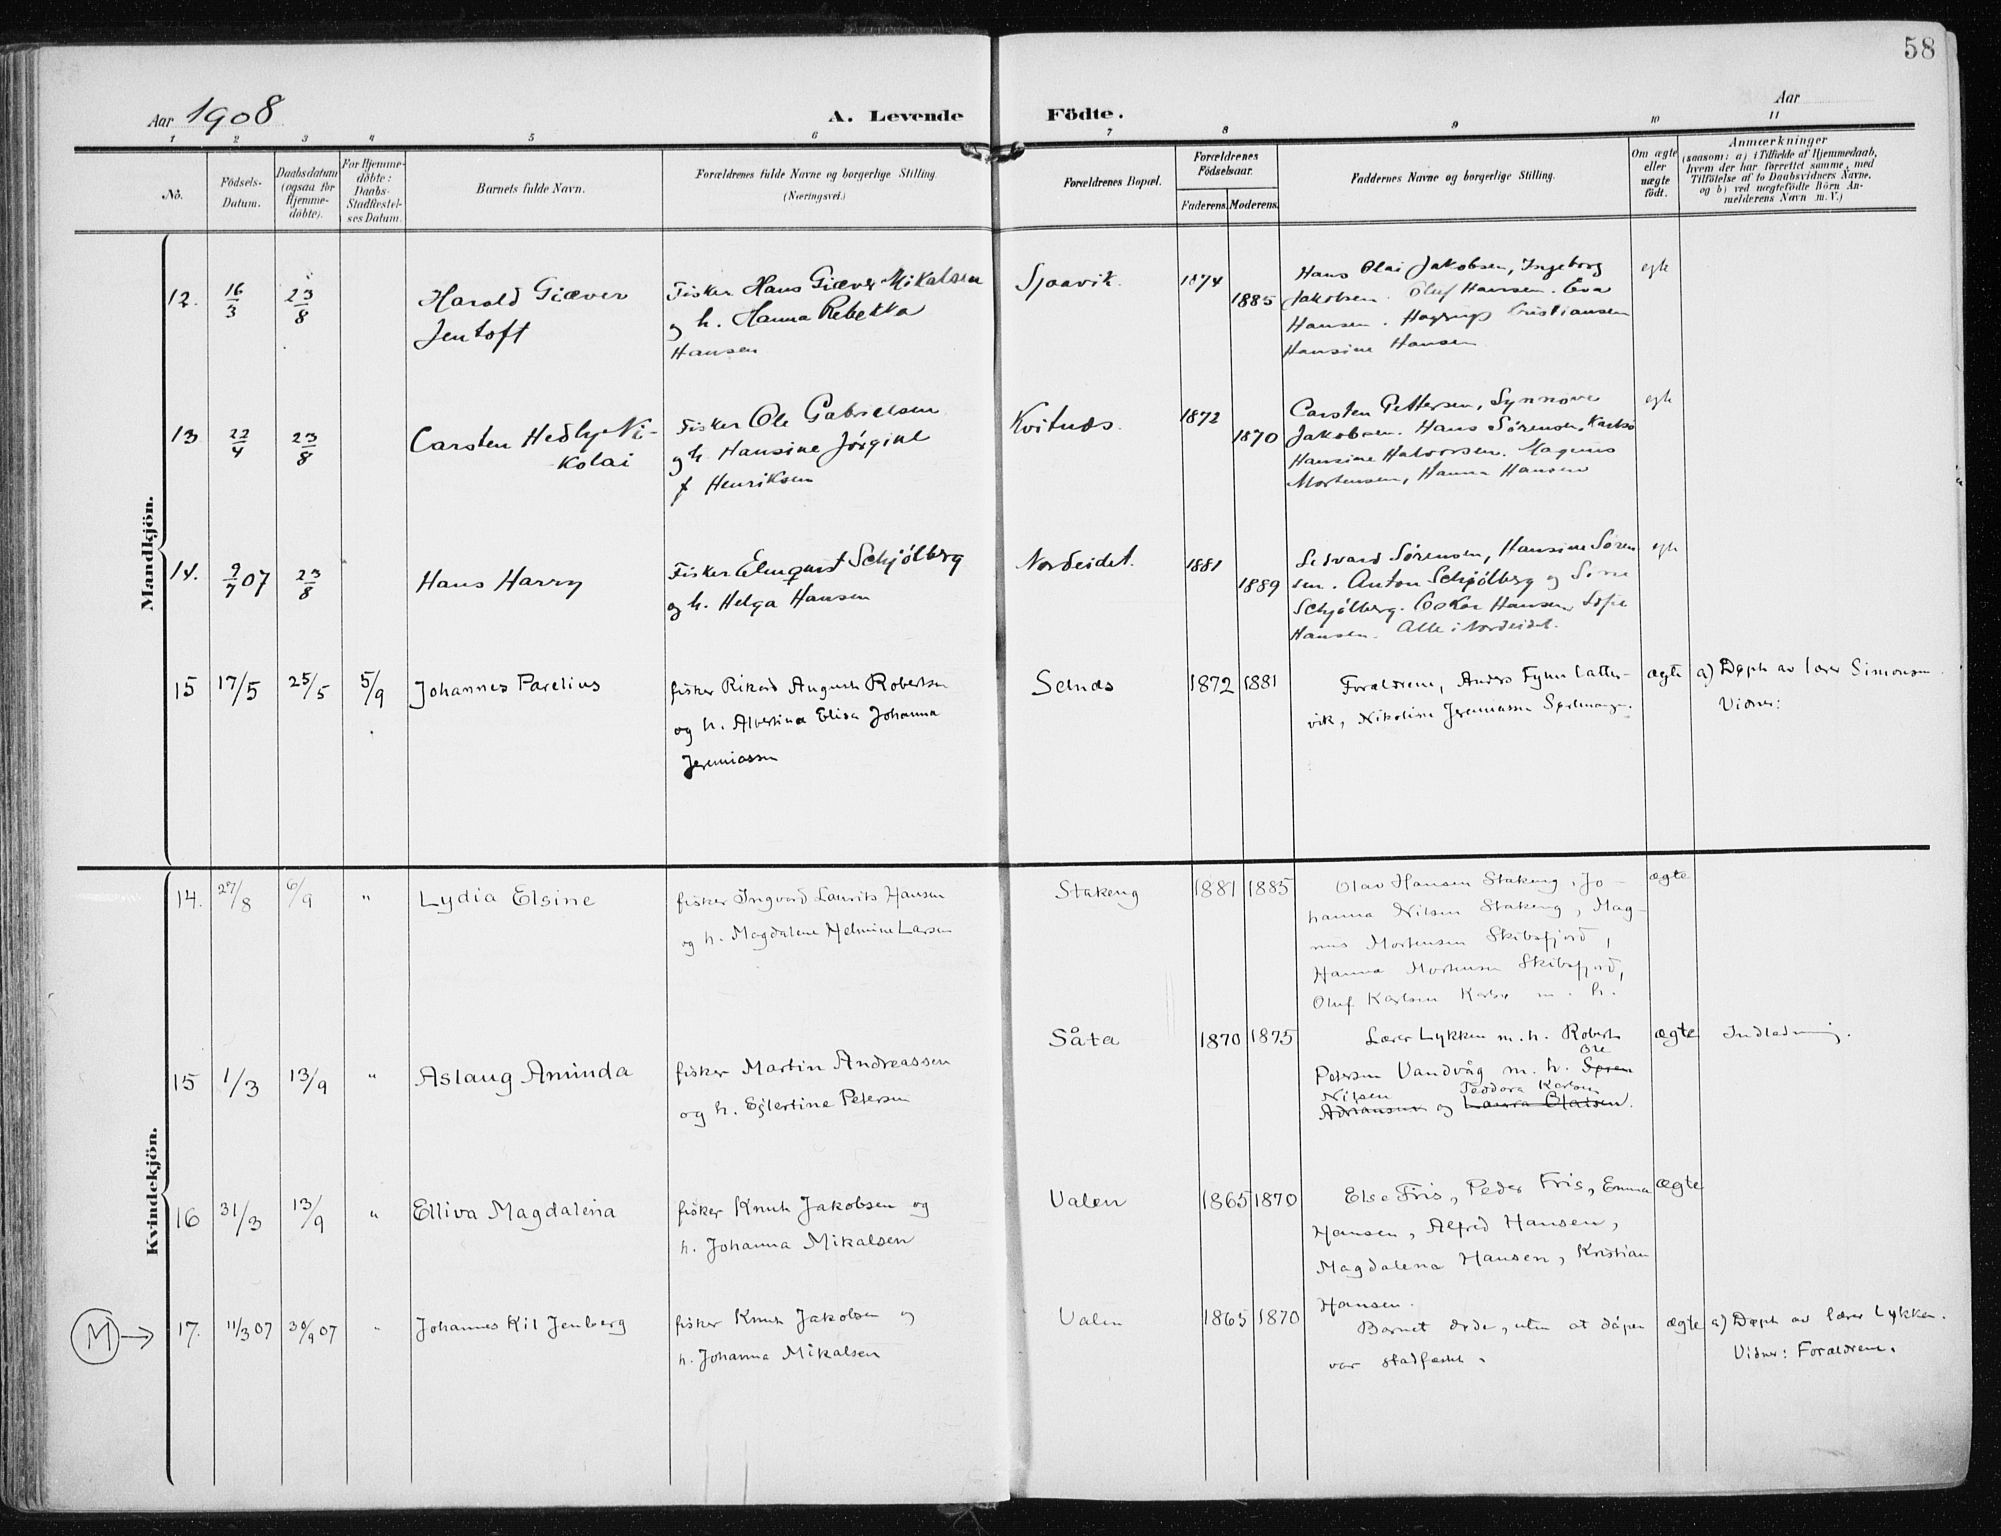 58
Aar 1908
A. Levende Födte.
Aar
1 2 3 4 5 6 7 8 9 10 11
No.
Födsels-Datum.
Daabsdatum (ogsaa för Hjemme-döbte).
For Hjemme-döbte: Daabs-Stadfæstel-ses Datum.
Barnets fulde Navn.
Forældrenes fulde Navne og borgerlige Stilling.
(Næringsvei.)
Forældrenes Bopæl.
Forældrenes Födselsaar.
Faderens. Moderens.
Faddernes Navne og borgerlige Stilling.
Om ægte eller uægte födt.
Anmærkninger
(saasom: a) i Tilfælde af Hjemmedaab,
hvem der har forrettet samme, med
Tilföielse af to Daabsvidners Navne,
og b) ved uægtefödte Börn An-
melderens Navn m. V.)
Mandkjön.
12. 16/3 23/8 Harald Giæver
Jentoft
Fisker Hans Giæver Mikalsen
og h. Hanna Rebekka
Hansen
Sjaavik. 1874 1885
Hans Olai Jakobsen, Ingeborg
Jakobsen. Oluf Hansen. Eva
Hansen. Cristiansen
Hansine Hansen
egte
13 22/4 23/8 Carsten Hedly Ni-
kolai
Fisker Ole Gabrielsen
og h. Hansine Jørgine
f Henriksen
Kvitnæs. 1872 1870
Carsten Pettersen, Synnøve
Jakobsen. Hans Sørensen, Karlsø
Hansine Halvorsen. Magnus
Mortensen, Hanna Hansen
egte
14. 9/7 07 23/8 Hans Harry
Fisker Elmqvist Schjölberg
og h. Helga Hansen
Nordeidet. 1881 1889
Sedvard Sørensen, Hansine Søren
sen. Anton Schjölberg og
Schjölberg. Oskar Hansen, Sofie
Hansen. Alle i Nordeidet.
egte
15 17/5 25/5 5/9 Johannes Parelius
fisker Rikard August Robertsen
og h. Albertina Elisa Johanna
Jeremiassen
Selnæs 1872 1881
Forældrene, Anders Fynn Catter-
vik, Nikoline Jeremiassen
ægte
a) Døpt av lærer Simonsen
Vidner:
Kvindekjön.
14. 27/8 6/9 " Lydia Elsine
fisker Ingvard Laurits Hansen
og h. Magdalene Helmine Larsen
Stakeng 1881 1885
Olav Hansen Stakeng, Jo-
hanna Nilsen Stakeng, Mag-
nus Mortensen Skibsfjord,
Hanna Mortensen Skibsfjord,
Oluf Karlsen Karlsø m. h.
ægte
15 1/3 13/9 " Aslaug Aminda
fisker Martin Andreassen
og h. Ejlertine Petersen
Såta 1870 1875
Lærer Lykken m. h. Robert
Ole
Petersen Vandvåg m. h. Søren
Nilsen Teodora Karlsen
Adriansen og Laura Olaisen.
ægte
Indledning.
16 31/3 13/9 " Elliva Magdalena
fisker Knut Jakobsen og
h. Johanna Mikalsen
Valen 1865 1870
Else Fris, Peder Fris, Emma
Hansen, Alfred Hansen,
Magdalena Hansen, Kristian
Hansen.
ægte
M → 17. 11/3 07 30/9 07 " Johannes Kil Jenberg
fisker Knut Jakobsen og
h. Johanna Mikalsen
Valen 1865 1870
Barnet døde, uten at dåpen
var stadfæstet.
ægte
a) Døpt av lærer Lykken.
Vidner: Forældrene.